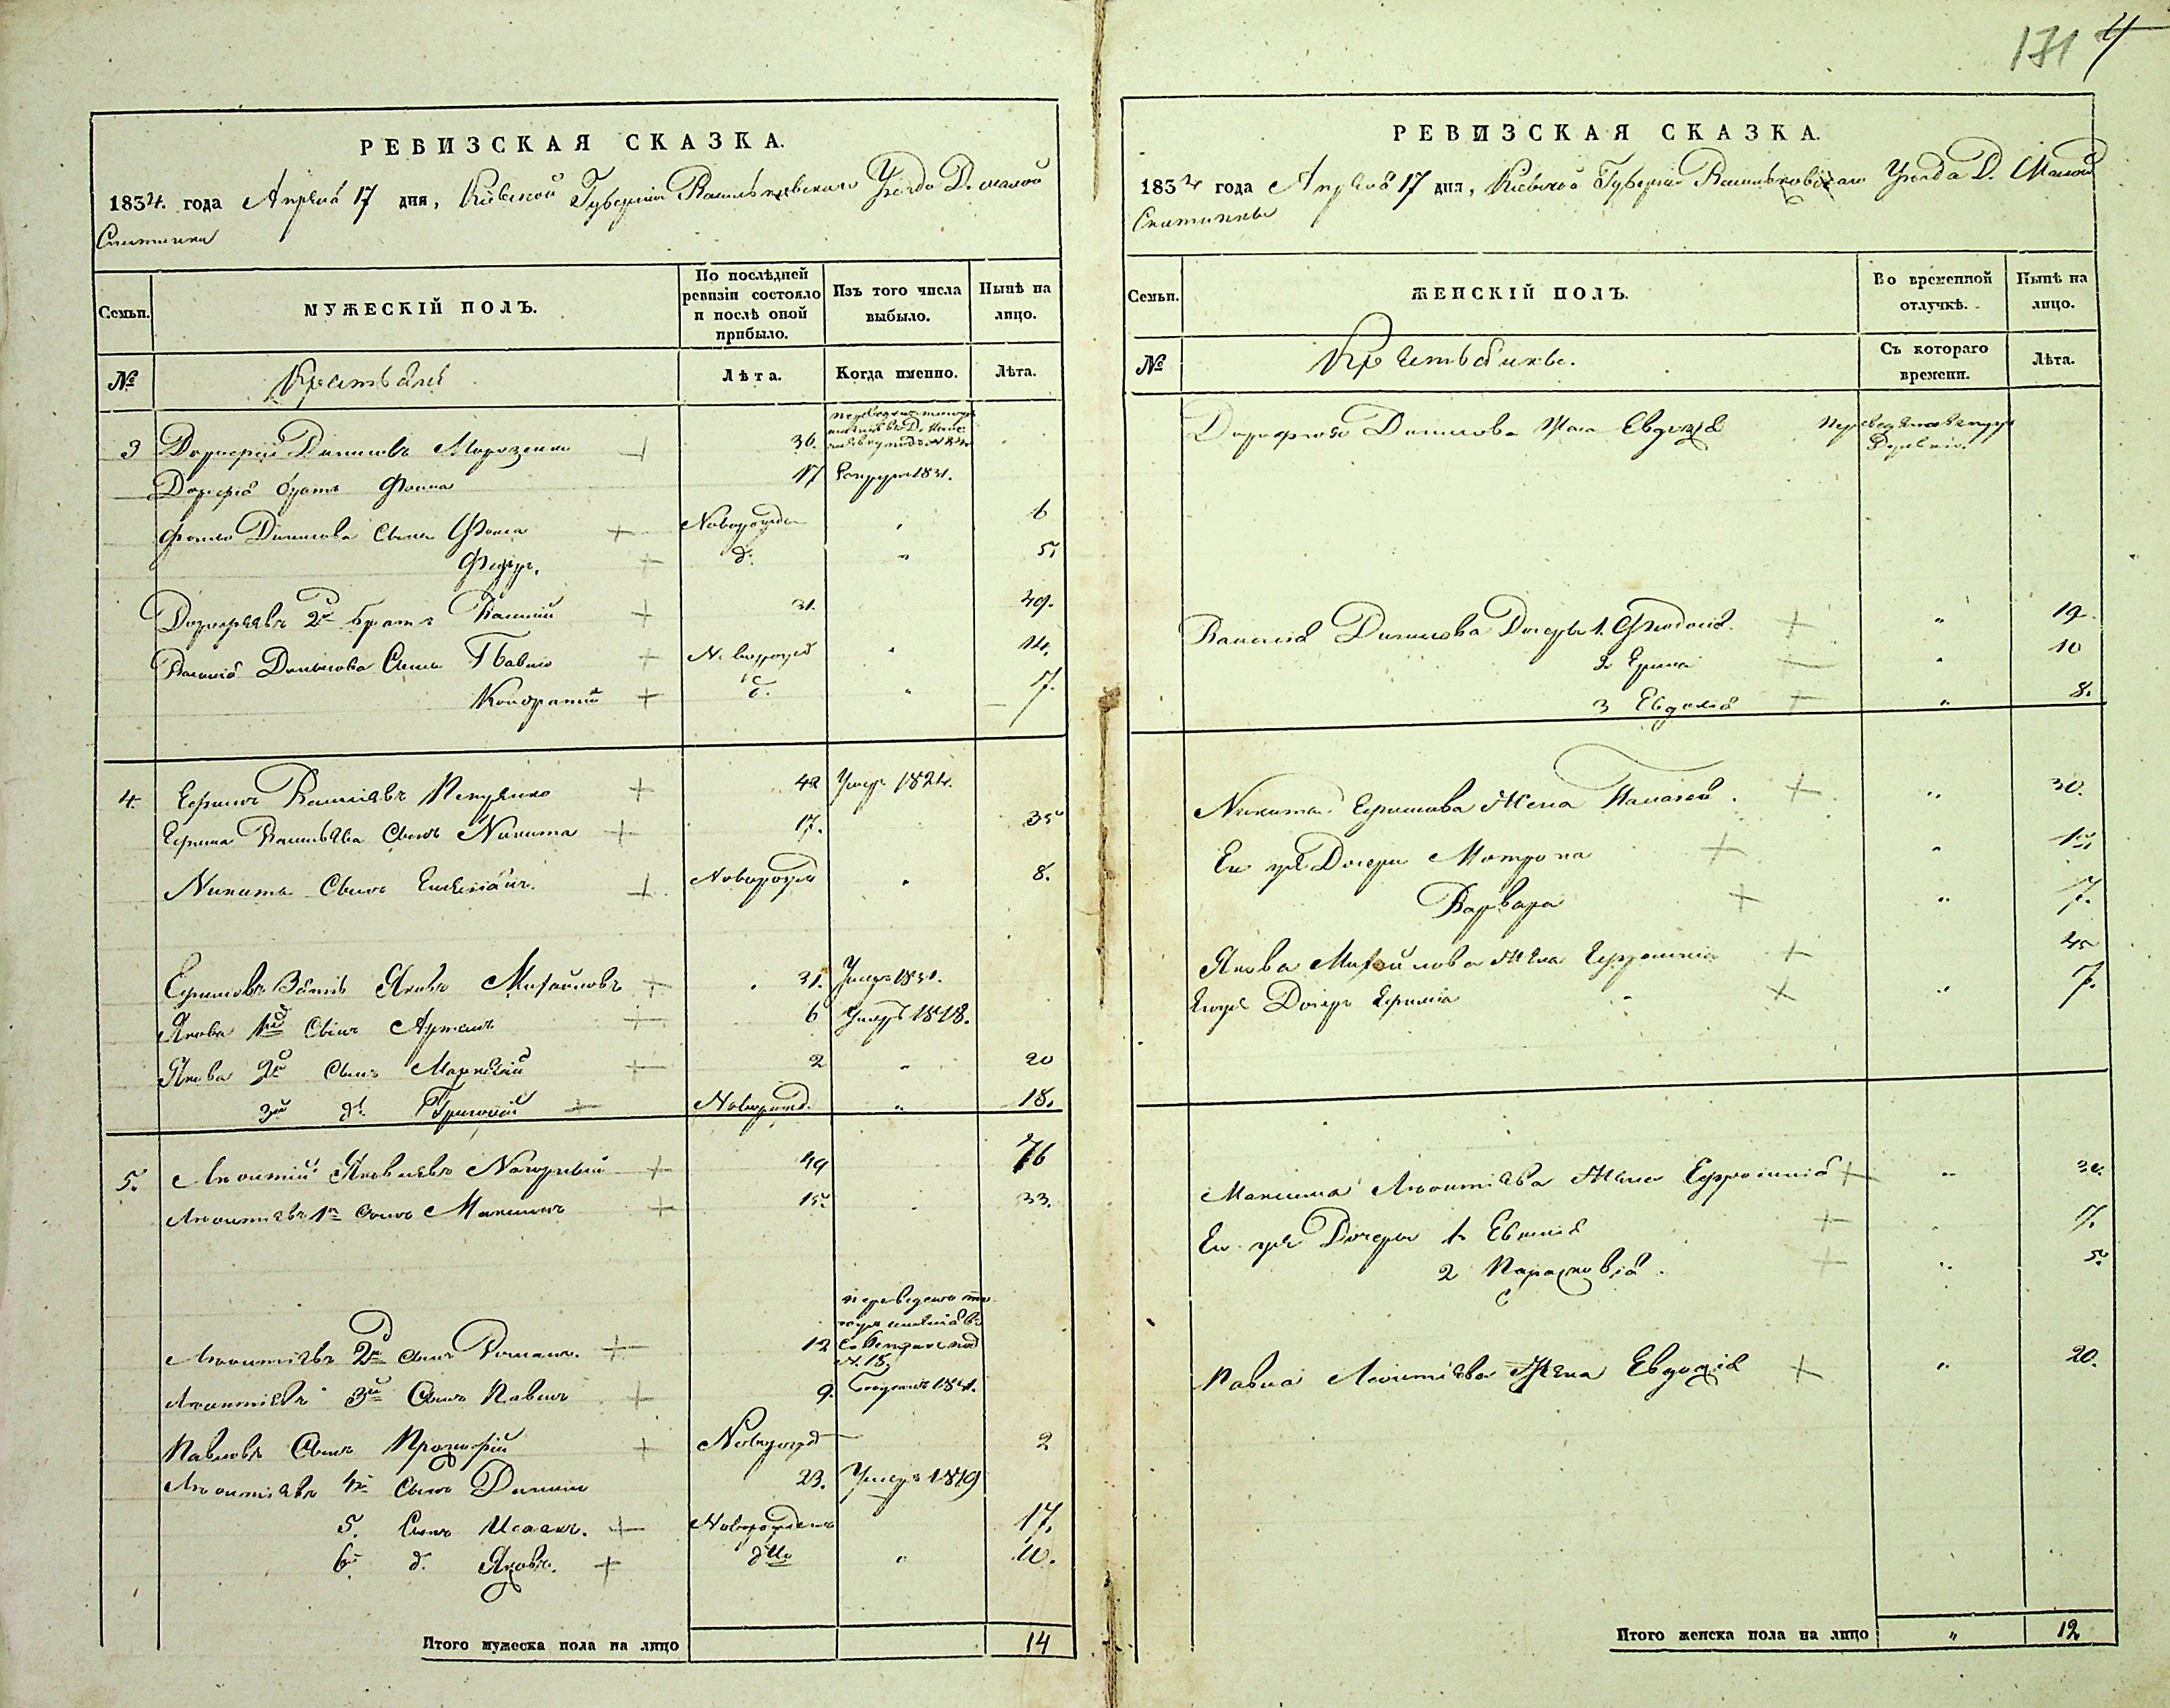 171 4
РЕВИЗСКАЯ СКАЗКА.
1834. года Апреля 17 дня, Киевской Губернии Васильковскаго Уезда Д. малой
Снитинки
Семьи.
МУЖЕСКІЙ ПОЛЪ.
По послѣдней ревизіи состояло и послѣ оной прибыло.
Изъ того числа выбыло.
Нынѣ на лицо.
№
Крестьяне
Лѣта.
Когда именно.
Лѣта.
3 Дорофей Даниловъ Морозенко 36.
Дорофея братъ Фома 17 Рекрутъ 1831.
Фомы Данилова сынъ Фома Новорожде " 6
Федоръ. д. " 5
Дорофеевъ 2й братъ Василий 31. 49.
Василия Данилова Сынъ Павло Новорожд " 14.
Кондратий д. " 7.
4. Ефимъ Васильевъ 42 Умер 1824.
Ефима Васильева Сынъ Никита 17. 35
Никиты Сынъ Новорожд " 8.
Ефимовъ Зять Яковъ Михайловъ 31. Умеръ 1831.
Якова 1й Сынъ Артемъ 6 Умеръ 1818.
Якова 2й Сынъ 2 " 20
3й д. Григорий Новорожд. " 18.
5. Леонтий Яковлевъ Нагорный 49 76
Леонтиевъ 1й сынъ Максимъ 15 33.
переведенъ
Леонтиевъ 2й сынъ Романъ. 12
Леонтиевъ 3й Сынъ Павелъ 9.
Павловъ Сынъ Прокофий Новорожд 2
Леонтиевъ 4й Сынъ Данило 23. Умеръ 1819
5. Сынъ Исаакъ. Новорожденъ 17.
6й д. Яковъ. дто " 10.
Итого мужеска пола на лицо 14
РЕВИЗСКАЯ СКАЗКА.
1834 года Апреля 17 дня, Киевской Губернии Васильковскаго Уезда Д. Малой
Снитинки
Семьи.
ЖЕНСКІЙ ПОЛЪ.
Во временной отлучкѣ.
Нынѣ на лицо.
№
Крестьянки.
Съ котораго времени.
Лѣта.
Дорофея Данилова Жена Евдокия
Василия Данилова Дочери 1. Феодосия. " 19.
2 Ирина " 10
3 Евдокия " 8.
Никиты Ефимова Жена " 30.
Ея же Дочери Матрона " 15
Варвара " 7.
Якова Михайлова Жена Ефросиния 45
Дочерь " 7.
Максима Леонтиева Жена Ефросиния " 30.
Ея же Дочери 1. 7.
2 Парасковия. " 5
Павла Леонтиева Жена Евдокия " 20.
Итого женска пола на лицо " 12